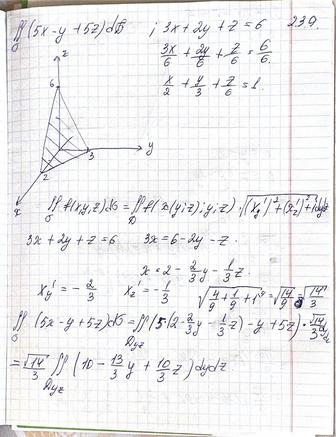 ∬σ (5x-y+5z)dσ ; 3x+2y+z=6 239.
3x/6 + 2y/6 + z/6 = 6/6.
x/2 + y/3 + z/6 = 1.
z
6
2 3 y
x
∬σ f(x,y,z)dσ = ∬D f(x(y;z);y;z)·√((x'y)²+(x'z)²+1)dydz
3x+2y+z=6 3x=6-2y-z.
x=2-2/3y-1/3z
x'y=-2/3 x'z=-1/3 √(4/9+1/9+1)=√(14/9)=√14/3
∬σ (5x-y+5z)dσ=∬Dyz (5(2-2/3y-1/3z)-y+5z)·√14/3
=√14/3 ∬Dyz (10-13/3y+10/3z)dydz